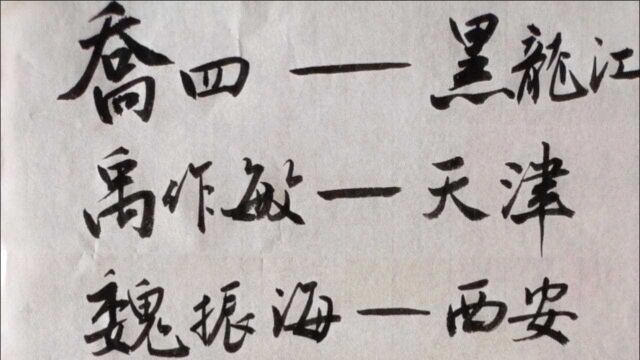 喬四—黑龍江
禹作敏—天津
魏振海—西安